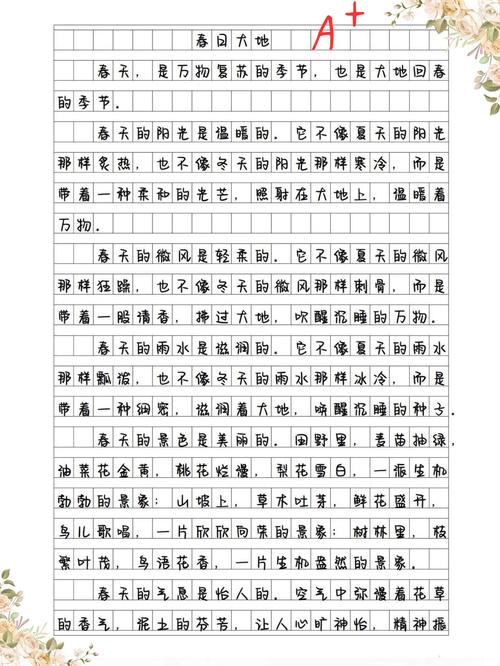 春日大地
A+
春天，是万物复苏的季节，也是大地回春
的季节。
春天的阳光是温暖的。它不像夏天的阳光
那样炙热，也不像冬天的阳光那样寒冷，而是
带着一种柔和的光芒，照射在大地上，温暖着
万物。
春天的微风是轻柔的。它不像夏天的微风
那样狂躁，也不像冬天的微风那样刺骨，而是
带着一股清香，拂过大地，吹醒沉睡的万物。
春天的雨水是滋润的。它不像夏天的雨水
那样飘泼，也不像冬天的雨水那样冰冷，而是
带着一种细密，滋润着大地，唤醒沉睡的种子。
春天的景色是美丽的。田野里，麦苗抽绿，
油菜花金黄，桃花烂漫，梨花雪白，一派生机
勃勃的景象；山坡上，草木吐芽，鲜花盛开，
鸟儿歌唱，一片欣欣向荣的景象；树林里，枝
繁叶茂，鸟语花香，一片生机盎然的景象。
春天的气息是怡人的。空气中弥漫着花草
的香气，泥土的芬芳，让人心旷神怡，精神振